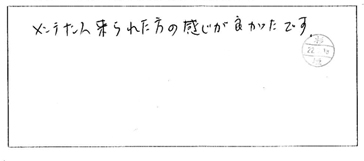 メンテナンス来られた方の感じが良かったです。